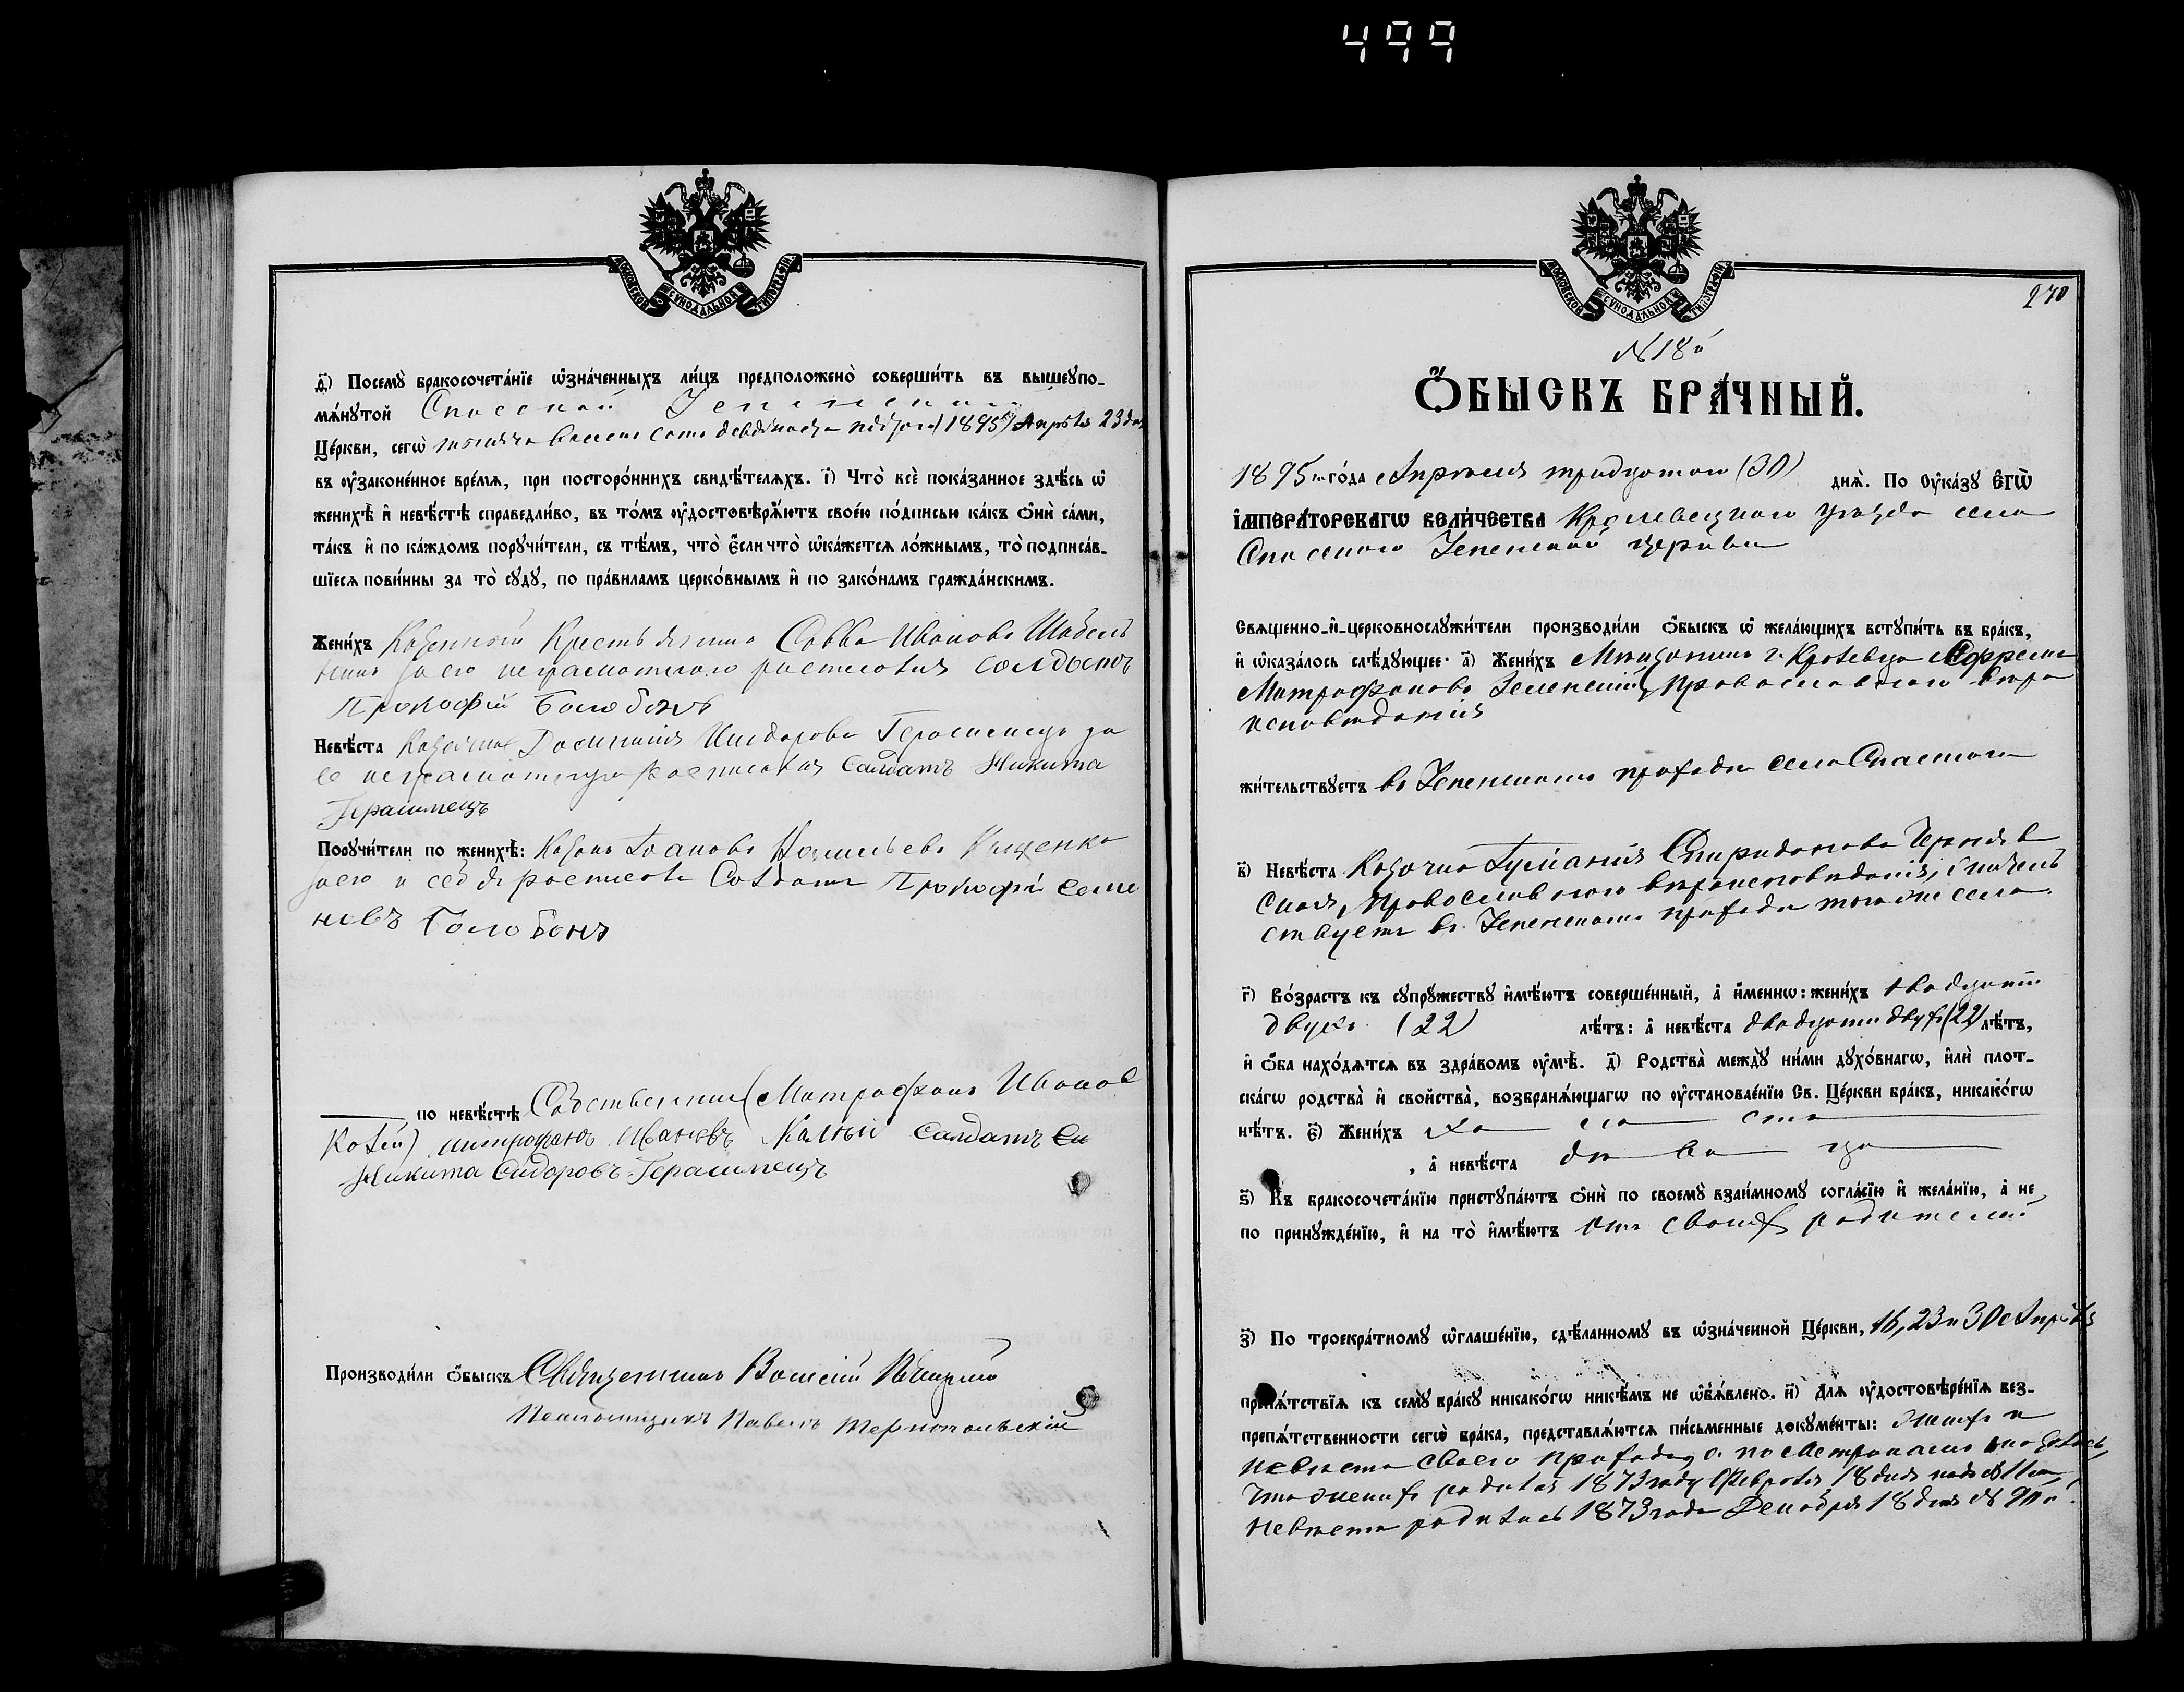 499
МОСКОВСКОЙ СѴНОДАЛЬНОЙ ТИПОГРАФІИ
д҃) Посемꙋ̀ бракосочета́нїе ѡ҆зна́ченныхъ ли́цъ предположено̀ соверши́ть въ вышеꙋпо-
мѧ́нꙋтой Спасской
Це́ркви, сегѡ̀ тысяча восемь сотъ девяносто пятого (1895) Апрѣля 23 дня
въ ᲂу҆законе́нное вре́мѧ, при посторо́ннихъ свидѣ́телѧхъ. і҃) Что̀ всѐ пока́занное здѣ́сь ѡ҆
женихѣ̀ и҆ невѣ́стѣ справедли́во, въ то́мъ ᲂу҆достовѣрѧ́ютъ свое́ю по́дписью ка́къ ѻ҆нѝ са́ми,
та́къ и҆ по ка́ждомъ порꙋчи́тели, съ тѣ́мъ, что̀ є҆́сли что̀ ѡ҆ка́жетсѧ ло́жнымъ, то̀ подписа́в-
шїесѧ пови́нны за то̀ сꙋдꙋ̀, по пра́виламъ церко́внымъ и҆ по зако́намъ гражда́нскимъ.
Жени́хъ Казенный Крестьянинъ Савва Ивановъ
за его неграмотного росписался солдатъ
Прокофій Голобонъ
Невѣ́ста Досифія Исидорова Герасименцъ за
ее неграмотную росписался Салдатъ Никита
Герасимецъ
Порꙋчи́тели по женихѣ̀: Козакъ Іоаннъ Кищенко
за его и себя росписався Солдатъ Прокофій Семе
новъ Голобонъ
по невѣ́стѣ Собственникъ Митрофанъ Иванов
митрофанъ Ивановъ Калный Салдатъ
Никита Сидоровъ Герасимецъ
Производи́ли ѻ҆́быскъ Священникъ Василій
Псаломщикъ Павелъ Тернопольскій
МОСКОВСКОЙ СѴНОДАЛЬНОЙ ТИПОГРАФІИ
270
№ 18й
Ѻ҆́БЫСКЪ БРА́ЧНЫЙ.
1895го го́да Апрѣля тридцатого (30) днѧ̀. По ᲂу҆ка́зꙋ є҆гѡ̀
і҆мпера́торскагѡ вели́чества Кролевецкого уѣзда села
Спасского церкви
Свѧще́нно-и҆-церковнослꙋжи́тели производи́ли ѻ҆́быскъ ѡ҆ жела́ющихъ встꙋпи́ть въ бра́къ,
и҆ ѡ҆каза́лось слѣ́дꙋющее: а҃) Жени́хъ Мѣщанинъ г. Кролевца Ефремъ
Митрофановъ Зеленскій, Православного вѣро
исповѣданія
жи́тельствꙋетъ въ приходѣ села Спаского
в҃) Невѣ́ста Козачка Гуліанія Спиридонова Черняв
ская, Православного вѣроисповѣданія, жытель
ствуетъ въ приходѣ того же села
г҃) Во́зрастъ къ сꙋпрꙋ́жествꙋ и҆мѣ́ютъ соверше́нный, а҆ и҆́меннѡ: жени́хъ двадцати
двухъ (22) лѣ́тъ: а҆ невѣ́ста двадцати двухъ (22) лѣ́тъ,
и҆ ѻ҆́ба нахо́дѧтсѧ въ здра́вомъ ᲂу҆мѣ̀. д҃) Родства̀ междꙋ̀ ни́ми дꙋхо́внагѡ, и҆лѝ плот-
ска́гѡ родства̀ и҆ сво́йства̀, возбранѧ́ющагѡ по ᲂу҆становле́нїю Св. Це́ркви бра́къ, никако́гѡ
нѣ́тъ. є҃) Жени́хъ хо ло стъ
, а҆ невѣ́ста дѣ ви ца
ѕ҃) Къ бракосочета́нїю пристꙋпа́ютъ ѻ҆нѝ по своемꙋ̀ взаи́мномꙋ согла́сїю и҆ жела́нїю, а҆ не
по принꙋжде́нїю, и҆ на то̀ и҆мѣ́ютъ отъ своихъ родителей
з҃) По троекра́тномꙋ ѡ҆глаше́нїю, сдѣ́ланномꙋ въ ѡ҆зна́ченной Це́ркви, 16, 23 и 30 Апрѣля
препѧ́тствїѧ къ семꙋ̀ бра́кꙋ никако́гѡ никѣ́мъ не ѡ҆б̾ѧ́влено. и҃) Длѧ ᲂу҆достовѣре́нїѧ без-
препѧ́тственности сегѡ̀ бра́ка, представлѧ́ютсѧ пи́сьменные докꙋме́нты: женихъ и
невѣста своего прихода, а по метрикамъ
что женихъ родился 1873 году Февраля 18 дня подъ № 11м,
невѣста родилась 1873 года Декабря 18 дня №